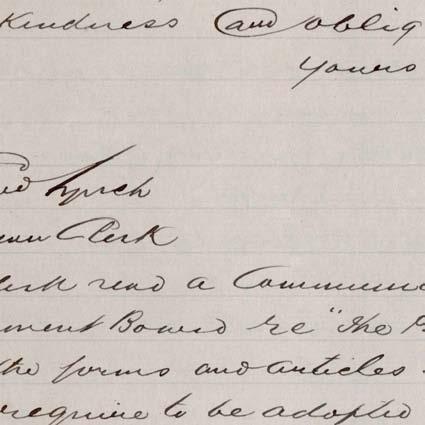 Kindness and oblig
Yours
Lynch
Clerk
lerk read a Commun
ment Board re "the P
the forms and articles
require to be adopted